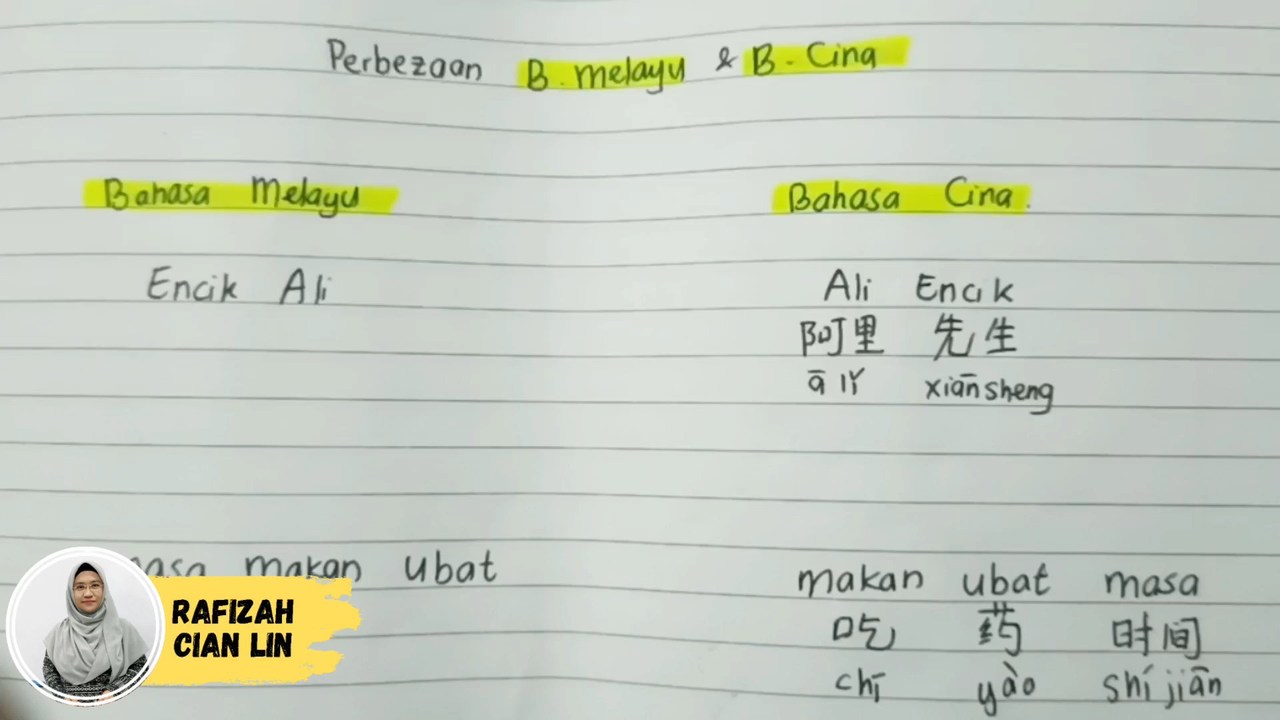 Perbezaan B. melayu & B. Cina
Bahasa Melayu
Encik Ali
makan ubat
Bahasa Cina.
Ali Encik
阿里 先生
ā lǐ xiān sheng
makan ubat masa
吃 药 时间
chī yào shí jiān
RAFIZAH
CIAN LIN